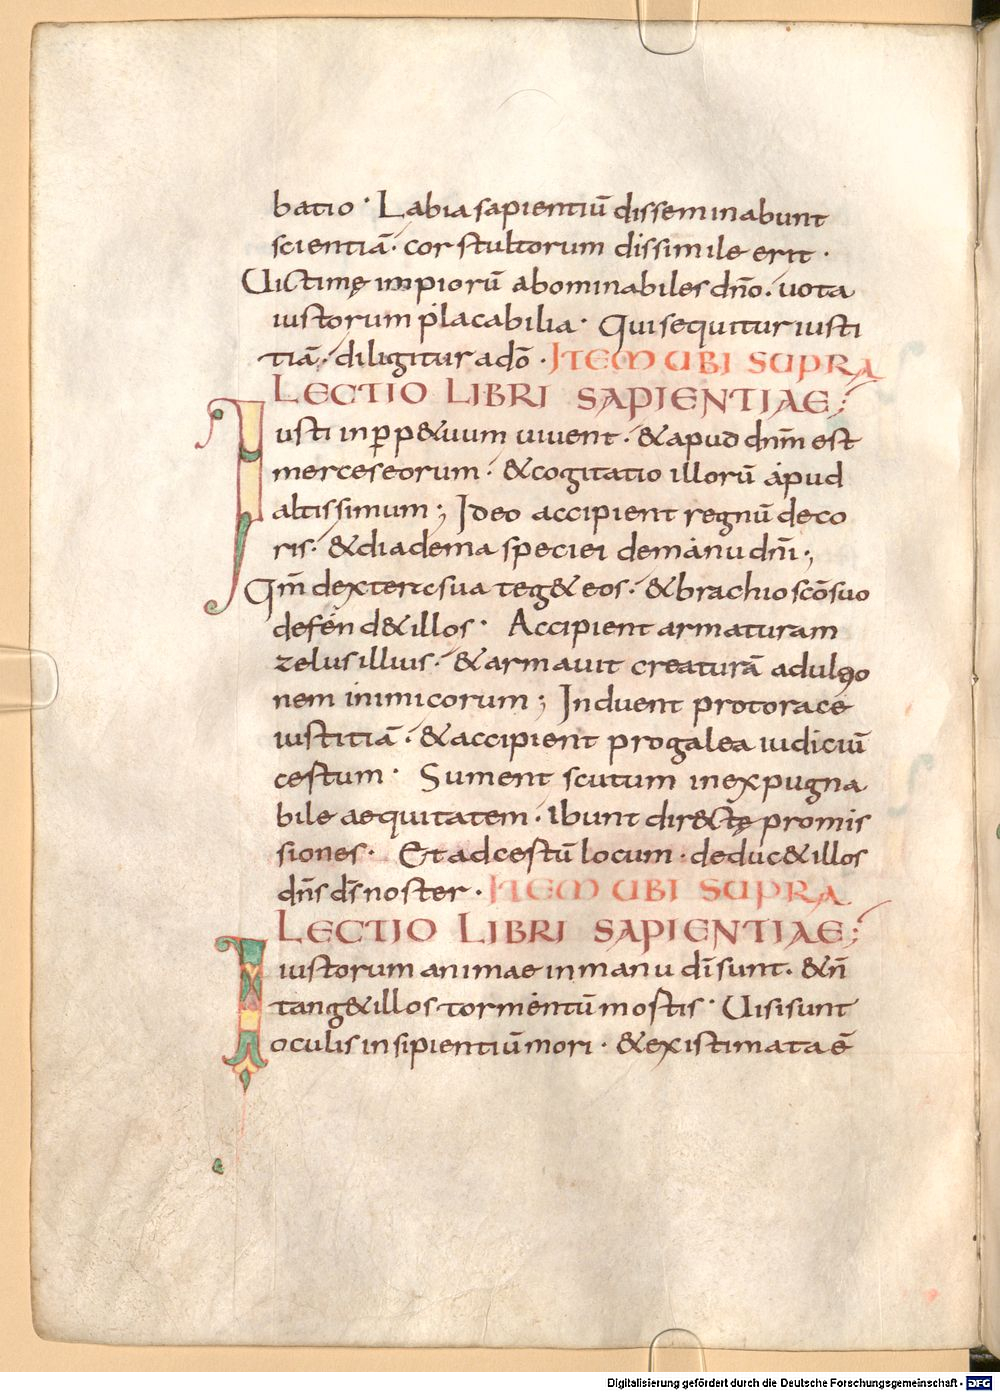 batio · Labia sapientiū disseminabunt
scientiā · cor stultorum dissimile erit ·
Uictimę impiorū abominabiles dn̄o · uota
iustorum placabilia · Qui sequitur iusti
tiā · diligitur ado᷒ · ITEM UBI SUPRA
LECTIO LIBRI SAPIENTIAE;
Iusti in ꝑp&uum uiuent · & apud dn̄m est
merces eorum · & cogitatio illorū apud
altissimum ; Ideo accipient regnū deco
ris · & diadema speciei de manu dn̄i ;
Qm̄ dextere sua teg& eos · & brachio sc̄o suo
defend& illos · Accipient armaturam
zelus illius · & armauit creaturā ad ultio
nem inimicorum ; Induent pro torace
iustitiā · & accipient pro galea iudiciū
cestum · Sument scutum inexpugna
bile aequitatem · Ibunt dir&ctę promis
siones · Et ad cestū locum · deduc& illos
dn̄s ds̄ noster · ITEM UBI SUPRA
LECTIO LIBRI SAPIENTIAE;
Iustorum animae in manu dī sunt · & n̄
tang& illos tormentū mostis · Uisi sunt
oculis insipientiū mori · & existimata ē
Digitalisierung gefördert durch die Deutsche Forschungsgemeinschaft - DFG